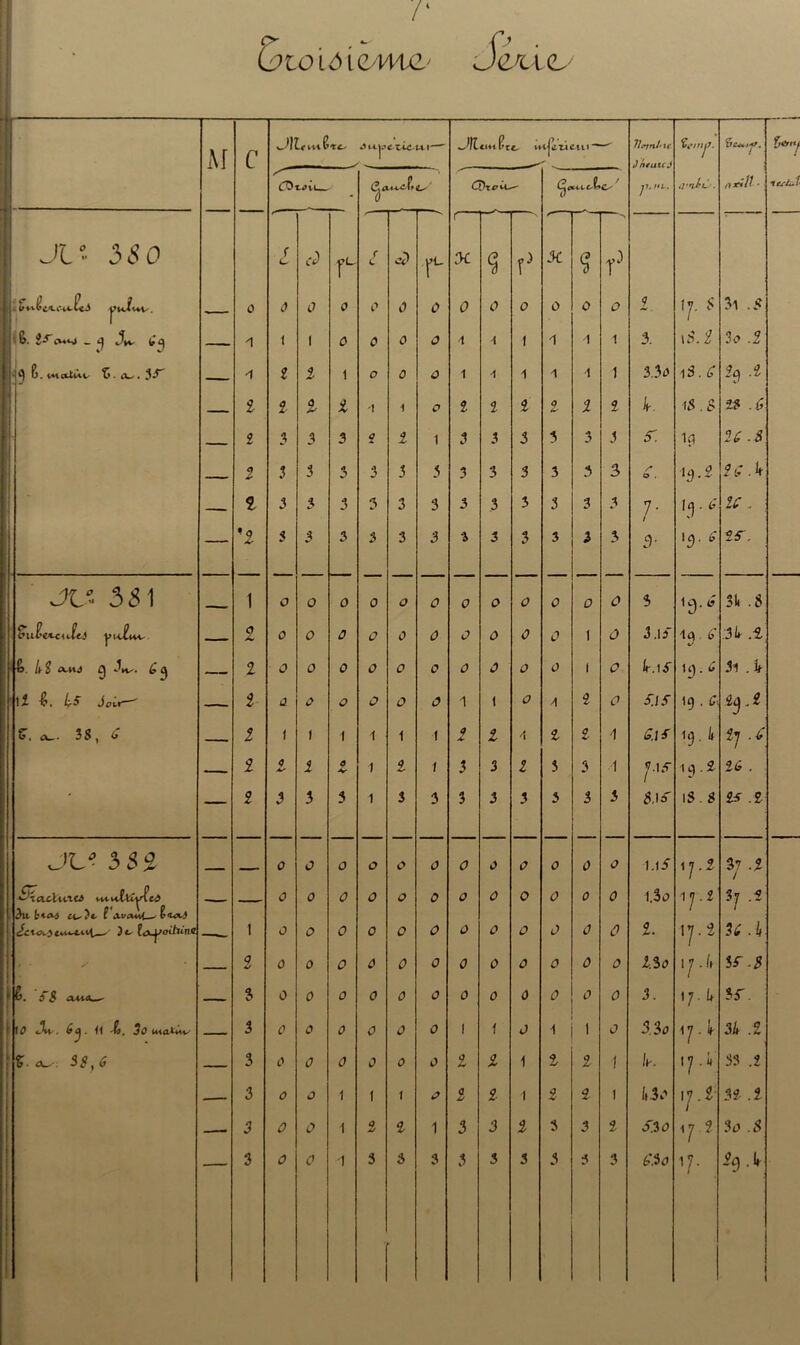 7.
Troisième Série
M C Membre supérieur Membre inférieur Nombre d'heures p. m. Temp. amb. Temp. axill. Temp. rectal
Droit Gauche Droit Gauche
N° 380 I c) pt I c) pt H G P H G P
Tubercules pulm. — 0 0 0 0 0 0 0 0 0 0 0 0 0 2. 17.8 31.8
— 1 1 1 0 0 0 0 1 1 1 1 1 1 3. 18.2 30.2
35 — 1 2 2 1 0 0 0 1 1 1 1 1 1 3.30 18.6 29.2
— 2 2 2 2 1 1 0 2 2 2 2 2 2 4. 18.8 28.6
— 2 3 3 3 2 2 1 3 3 3 3 3 3 5. 19 26.8
— 2 3 3 3 3 3 3 3 3 3 3 3 3 6. 19.2 26.4
— 2 3 3 3 3 3 3 3 3 3 3 3 3 7. 19.6 26.
— 2 3 3 3 3 3 3 3 3 3 3 3 3 9. 19.6 25.
N° 381 — 1 0 0 0 0 0 0 0 0 0 0 0 0 3 19.6 34.8
Tubercules pulm. — 2 0 0 0 0 0 0 0 0 0 0 1 0 3.15 19.6 34.2
h. 48 ans 9 Jv. 69 — 2 0 0 0 0 0 0 0 0 0 0 1 0 4.15 19.6 31.4
12 h. 45 soir — 2 0 0 0 0 0 0 1 1 0 1 2 0 5.15 19.6 29.2
T. a. 38,6 — 2 1 1 1 1 1 1 2 2 1 2 2 1 6.15 19.4 27.6
— 2 2 2 2 1 2 1 3 3 2 3 3 1 7.15 19.2 26.
— 2 3 3 3 1 3 3 3 3 3 3 3 3 8.15 18.8 25.2
N° 382 — — 0 0 0 0 0 0 0 0 0 0 0 0 1.15 17.2 37.2
Fractures multiples — — 0 0 0 0 0 0 0 0 0 0 0 0 1.30 17.2 37.2
du bras et de l'avant bras — 1 0 0 0 0 0 0 0 0 0 0 0 0 2. 17.2 36.4
— 2 0 0 0 0 0 0 0 0 0 0 0 0 2.30 17.4 35.8
h. 58 ans — 3 0 0 0 0 0 0 0 0 0 0 0 0 3. 17.4 35.
10 Jv. 69. 11 h. 30 matin — 3 0 0 0 0 0 0 1 1 0 1 1 0 3.30 17.4 34.2
T. a. 38,6 — 3 0 0 0 0 0 0 2 2 1 2 2 1 4. 17.4 33.2
— 3 0 0 1 1 1 0 2 2 1 2 2 1 4.30 17.2 32.2
— 3 0 0 1 2 2 1 3 3 2 3 3 2 5.30 17.2 30.8
— 3 0 0 1 3 3 3 3 3 3 3 3 3 6.30 17. 29.4